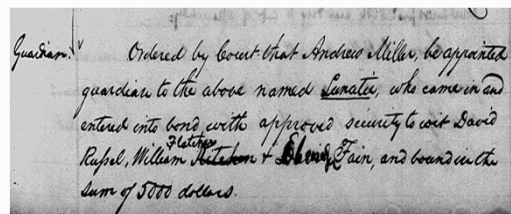 Guardian. Ordered by Court that Andrew Miller, be appointed
guardian to the above named Lunatic, who came in and
entered into bond with approved security to wit David
Fletcher
Russel, William & Fain, and bound in the
sum of 5000 dollars.